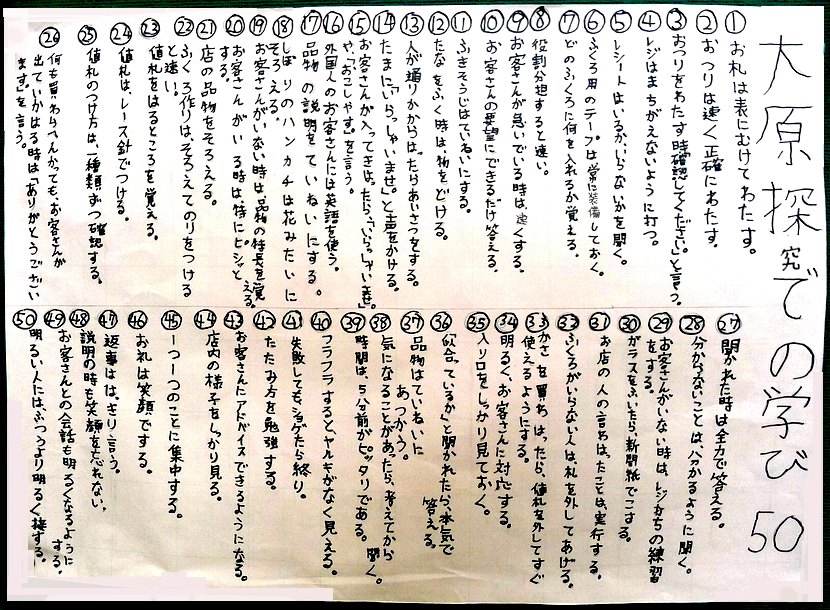 大原探究での学び50
①お札は表にむけてわたす。
②おつりは速く正確にわたす。
③おつりをわたす時「確認してください。」と言う。
④レジはまちがえないように打つ。
⑤レシートはいるか、いらないかを聞く。
⑥ふくろ用のテープは常に装備しておく。
⑦どのふくろに何を入れるか覚える。
⑧役割分担すると速い。
⑨お客さんが急いでいる時は、速くする。
⑩お客さんの要望にできるだけ答える。
⑪ふきそうじはていねいにする。
⑫たなをふく時は、物をどける。
⑬人が通りかからはったらあいさつをする。
⑭たまに「いらっしゃいませ。」と声をかける。
⑮お客さんが入ってきはったら、「いらっしゃいませ」
や、「おこしやす。」を言う。
⑯外国人のお客さんには英語を使う。
⑰品物の説明をていねいにする。
⑱しぼりのハンカチは花みたいに
そろえる。
⑲お客さんがいない時は、品物の特長を覚
える。
⑳お客さんがいる時は特にビシッと
する。
㉑店の品物をそろえる。
㉒ふくろ作りは、そろえてのりをつける
と速い!
㉓値札をはるところを覚える。
㉔値札は、レース針でつける。
㉕値札のつけ方は、一種類ずつ確認する。
㉖何も買わらへんかっても、お客さんが
出ていかはる時は「ありがとうござい
ます。」を言う。
㉗聞かれた時は全力で答える。
㉘分からないことは、分かるように聞く。
㉙お客さんがいない時は、レジ打ちの練習
をする。
㉚ガラスをふいたら、新聞紙でこする。
㉛お店の人の言わはったことは、実行する。
㉜ふくろがいらない人は、札を外してあげる。
㉝かさを買わはったら、値札を外してすぐ
使えるようにする。
㉞明るく、お客さんに対応する。
㉟入り口をしっかり見ておく。
㊱「似合っているか」と聞かれたら、本気で
答える。
㊲品物はていねいに
あつかう。
㊳気になることがあったら、考えてから
聞く。
㊴時間は、5分前がピッタリである。
㊵フラフラすると、ヤルキがなく見える。
㊶失敗してもショゲたら終り。
㊷たたみ方を勉強する。
㊸お客さんにアドバイスできるようになる。
㊹店内の様子をしっかり見る。
㊺一つ一つのことに集中する。
㊻お礼は笑顔でする。
㊼返事ははっきり言う。
㊽説明の時も笑顔を忘れない。
㊾お客さんとの会話も明るくなるように
する。
㊿明るい人にはふつうより明るく接する。